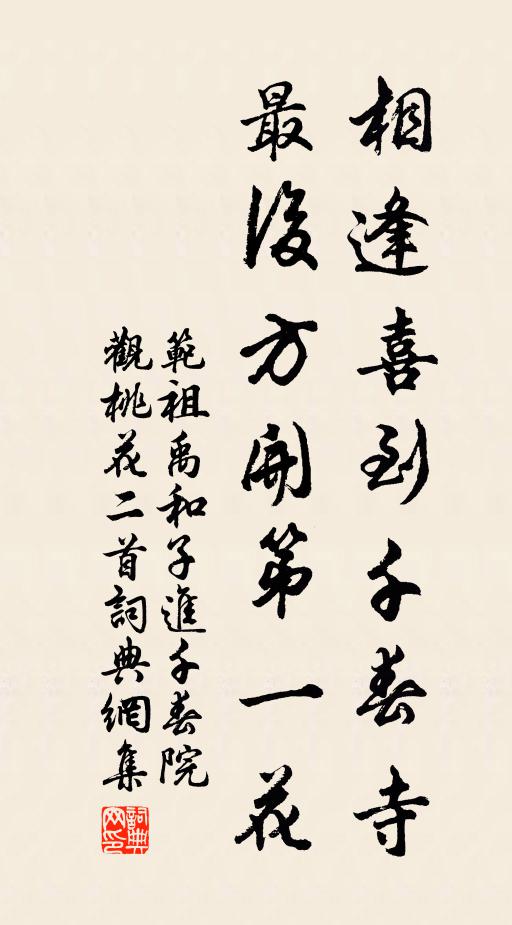 相逢喜到千春寺
最後方開第一花
範祖禹和子進千春院
觀桃花二首詞典網集
詞典
网印